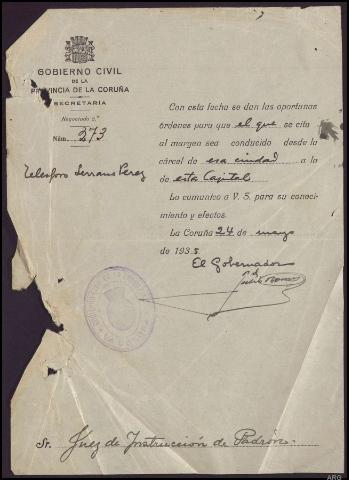 GOBIERNO CIVIL
DE LA
PROVINCIA DE LA CORUÑA
SECRETARIA
Negociado 2.º
Núm. 273
Telesforo Serrano Perez
Con esta fecha se dan las oportunas
órdenes para que el que se cita
al margen sea conducido desde la
cárcel de esa ciudad a la
de esta Capital
Lo comunico a V. S. para su conoci-
miento y efectos.
La Coruña 24 de mayo
de 1935
El Gobernador
Sr. Juez de Instrucción de Padrón.
ARG